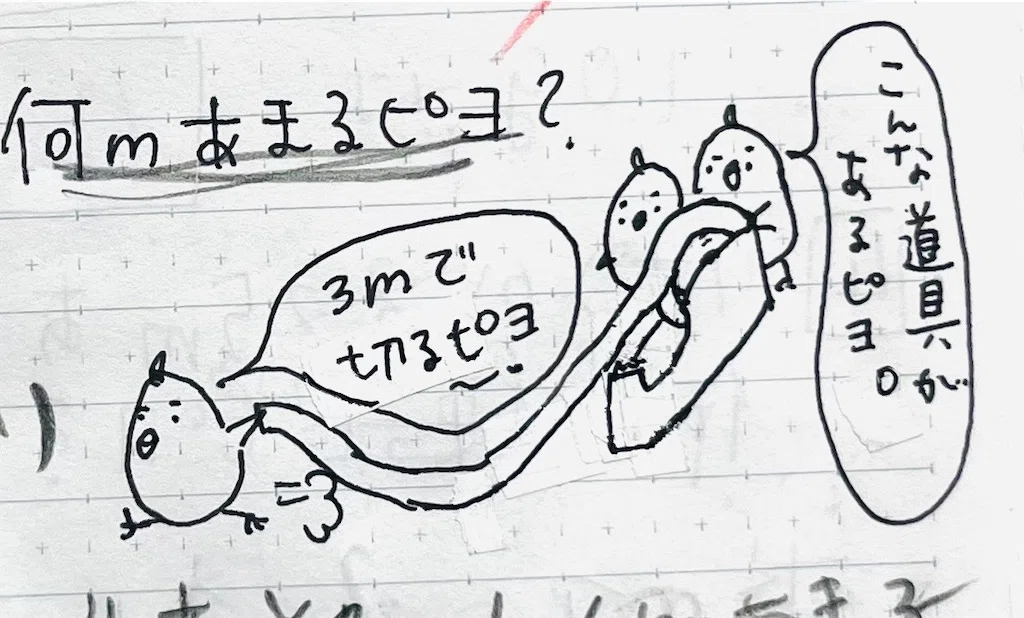 何mあまるピヨ?
3mで
切るピヨ〜.
こんな道具が
あるピヨ。